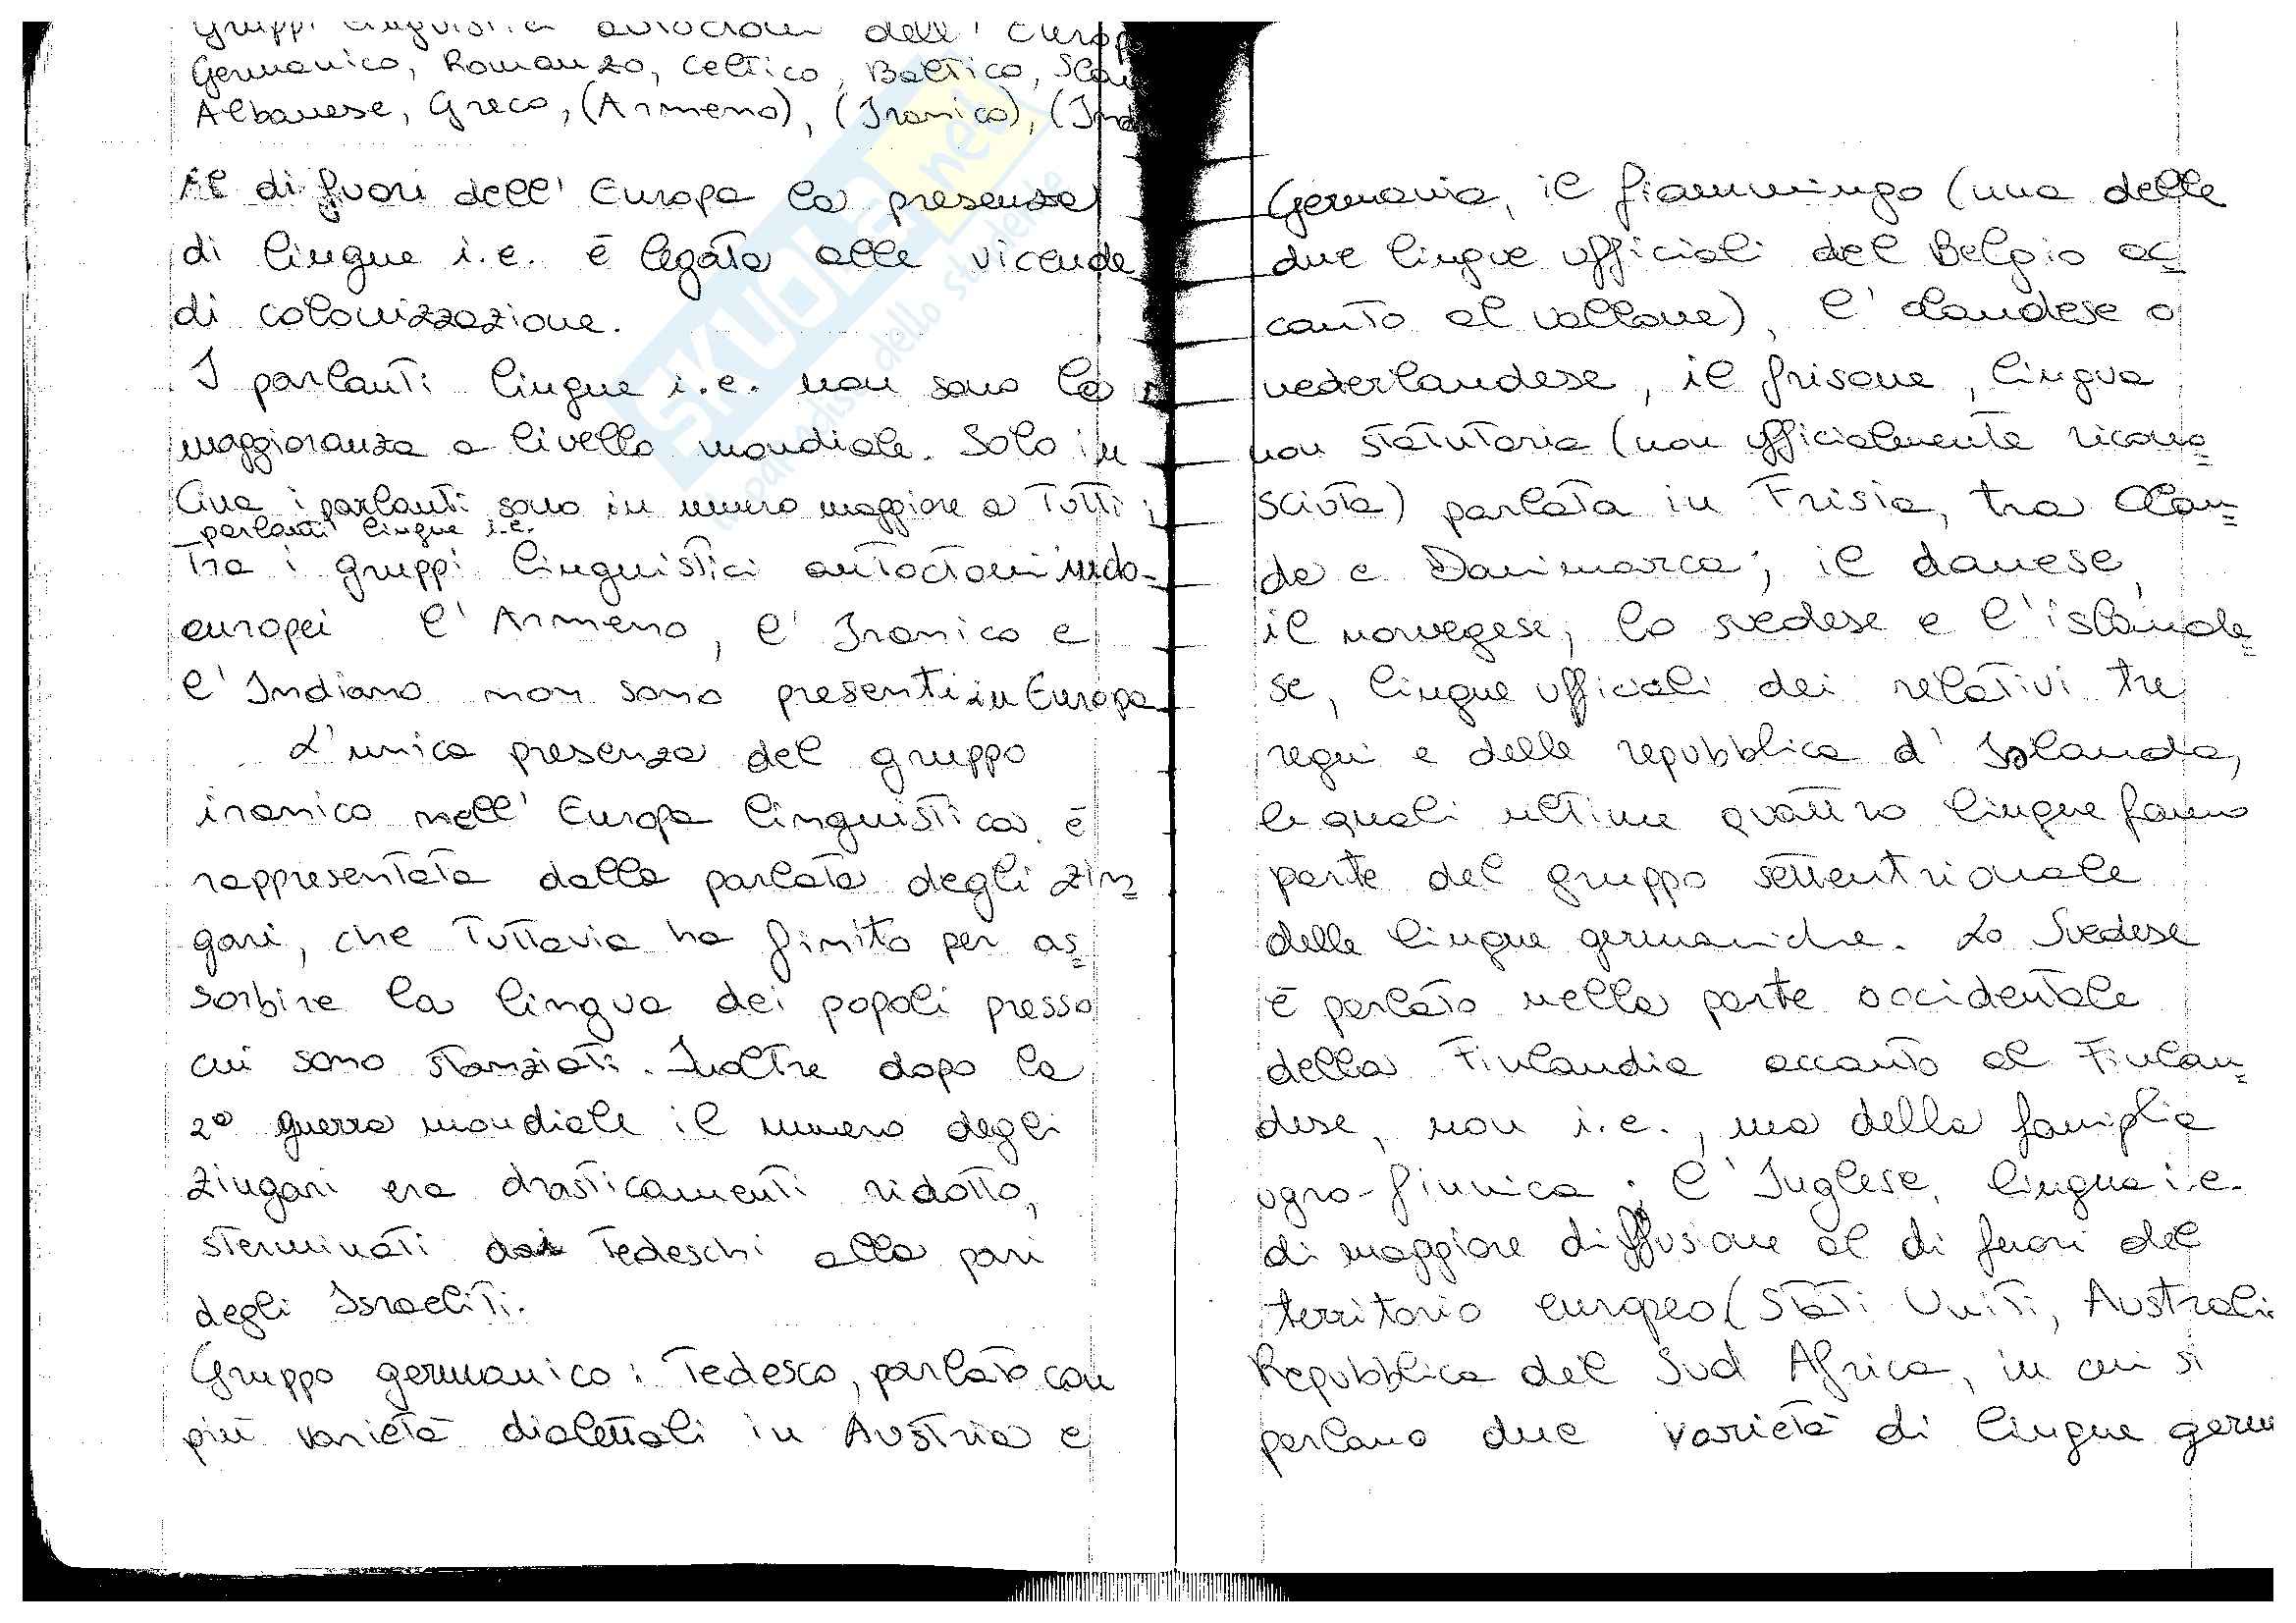 Gruppi linguistici autoctoni dell'Europ
Germanico, Romanzo, Celtico, Baltico, Slav
Albanese, Greco, (Armeno), (Iranico), (Ind
Al di fuori dell'Europa la presenza
di lingue i.e. è legata alle vicende
di colonizzazione.
I parlanti lingue i.e. non sono la
maggioranza a livello mondiale. Solo in
Cina i parlanti sono in numero maggiore a Tutti i
parlanti lingue i.e.
Tra i gruppi linguistici autoctoni indo-
europei l'Armeno, l'Iranico e
l'Indiano non sono presenti in Europa
L'unica presenza del gruppo
iranico nell'Europa linguistica è
rappresentata dalla parlata degli zin=
gari, che Tuttavia ha finito per as=
sorbire la lingua dei popoli presso
cui sono stanziati. Inoltre dopo la
2ª guerra mondiale il numero degli
zingari era drasticamenti ridotto,
sterminati dai Tedeschi alla pari
degli Israeliti.
Gruppo germanico: Tedesco, parlato con
più varietà dialettali in Austria e
Germania, il fiammingo (una delle
due lingue ufficiali del Belgio ac=
canto al vallone), l'olandese o
nederlandese, il frisone, lingua
non statutaria (non ufficialmente ricono=
sciuta) parlata in Frisia, tra Olan=
da e Danimarca; il danese,
il norvegese, lo svedese e l'islande=
se, lingue ufficiali dei relativi tre
regni e della repubblica d'Islanda,
le quali ultime quattro lingue fanno
parte del gruppo settentrionale
delle lingue germaniche. Lo Svedese
è parlato nella parte occidentale
della Finlandia accanto al Finlan=
dese, non i.e., ma della famiglia
ugro-finnica; l'Inglese, lingua i.e.
di maggiore diffusione al di fuori del
territorio europeo (Stati Uniti, Australi
Repubblica del Sud Africa, in cui si
parlano due varietà di lingue germ
SKUOLA.net
paradiso dello studente